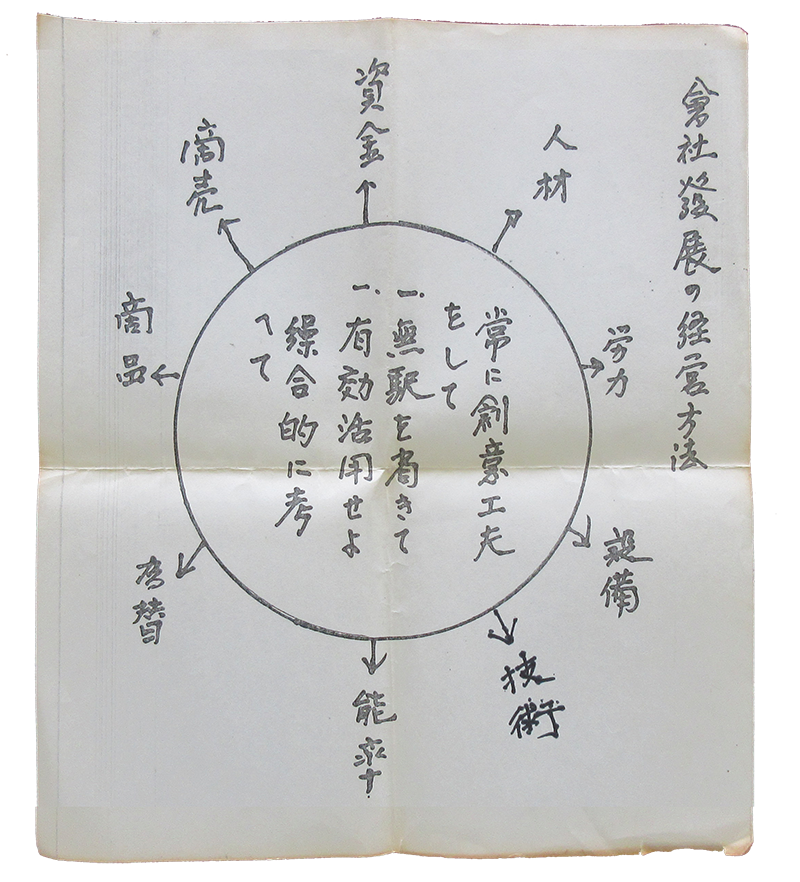 會社發展の経営方法
人材
労力
設備
技術
能率
為替
商品
商売
資金
常に創意工夫
をして
一、無駅を省きて
一、有効活用せよ
繰合的に考
へて